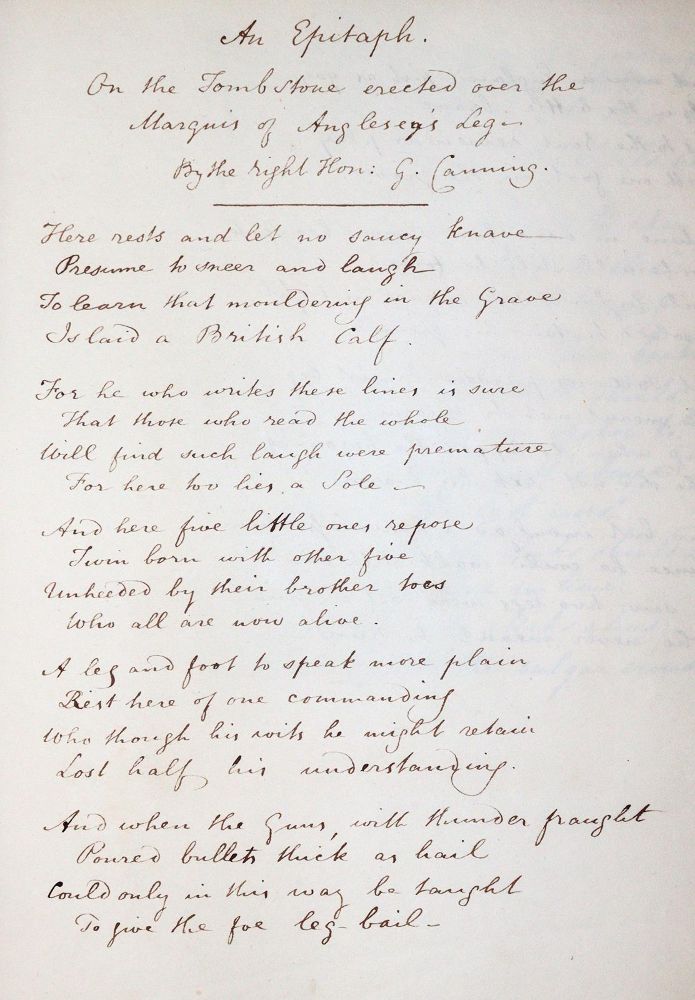 An Epitaph.
On the Tombstone erected over the
Marquis of Anglesey's Leg—
By the right Hon: G. Canning.
Here rests and let no saucy knave
Presume to sneer and laugh
To learn that mouldering in the Grave
Is laid a British Calf.
For he who writes these lines is sure
That those who read the whole
Will find such laugh were premature
For here too lies a Sole—
And here five little ones repose
Twin born with other five
Unheeded by their brother toes
Who all are now alive.
A leg and foot to speak more plain
Rest here of one commanding
Who though his wits he might retain
Lost half his understanding.
And when the Guns, with thunder fraught
Poured bullets thick as hail
Could only in this way be taught
To give the foe leg-bail—